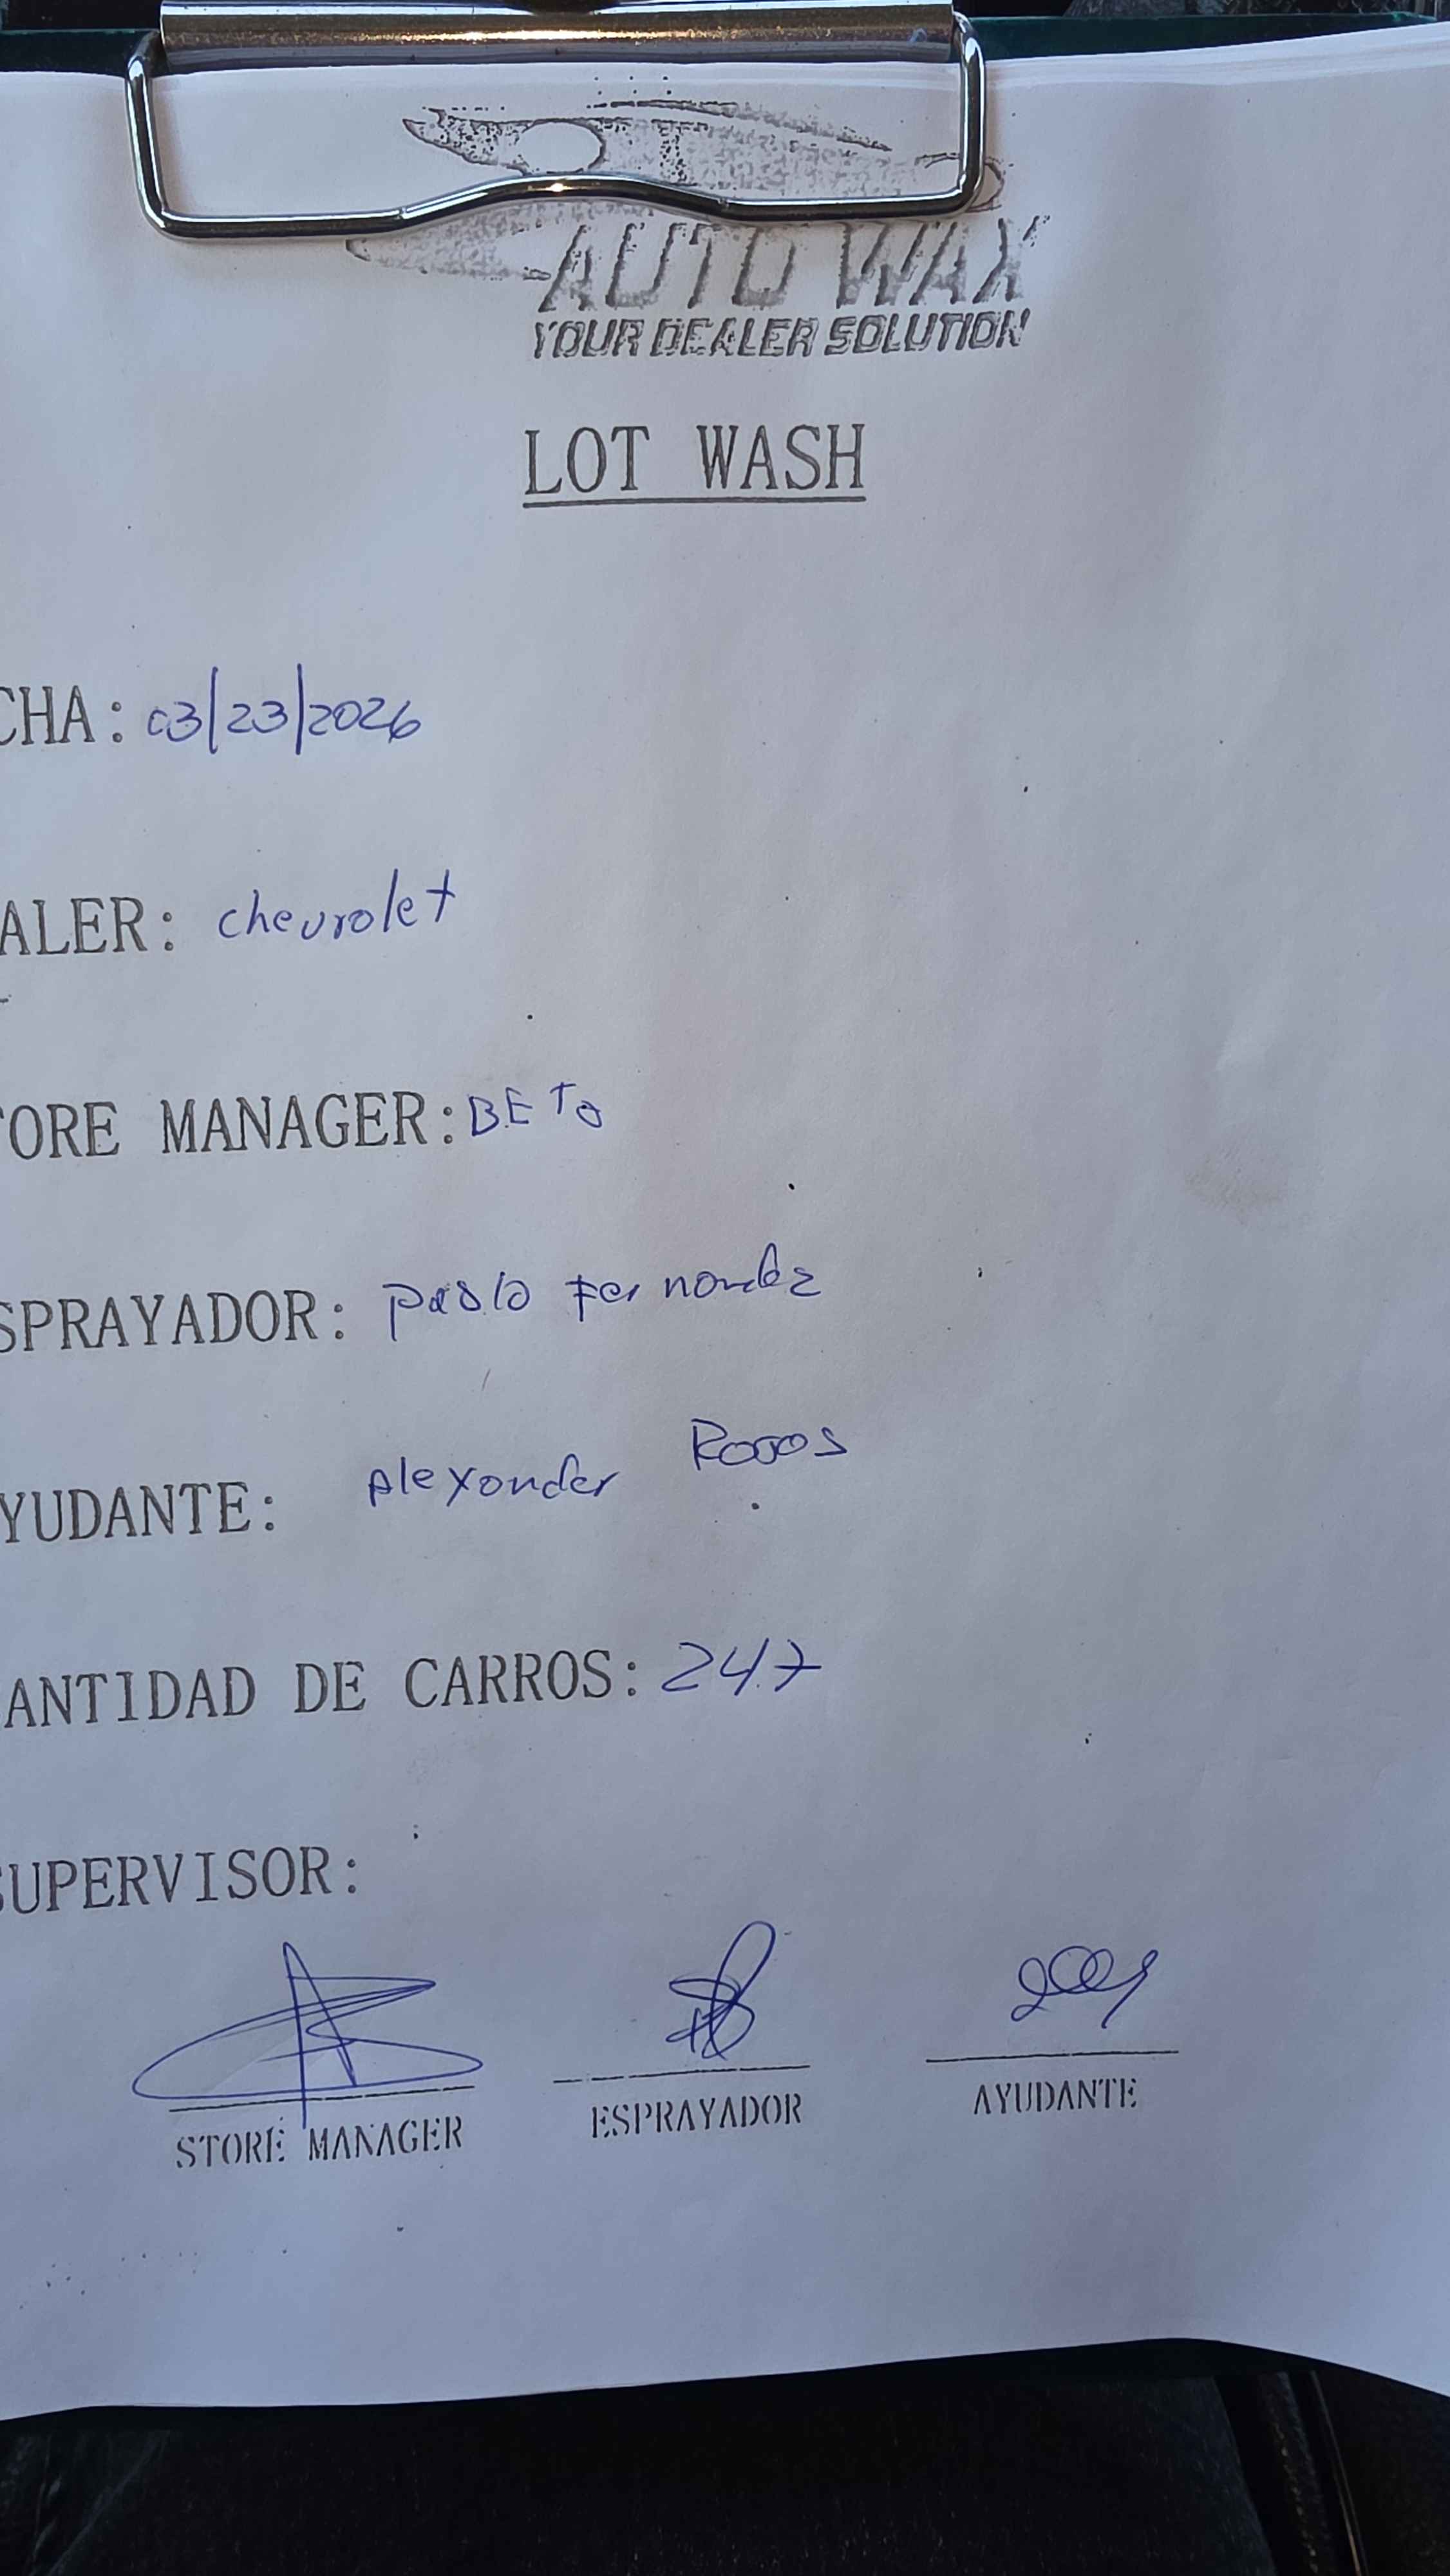 AUTO WAX
YOUR DEALER SOLUTION
LOT WASH
CHA: 03/23/2026
ALER: chevrolet
TORE MANAGER: BETO
SPRAYADOR: pablo Fernandez
YUDANTE: Alexander
ANTIDAD DE CARROS: 247
SUPERVISOR:
STORE MANAGER ESPRAYADOR AYUDANTE